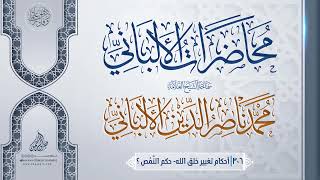 محاضرات الألباني
سماحة الشيخ العلامة
محمد ناصر الدين الألباني
٢٠٦ | أحكام تغيير خلق الله- حكم النمص ؟